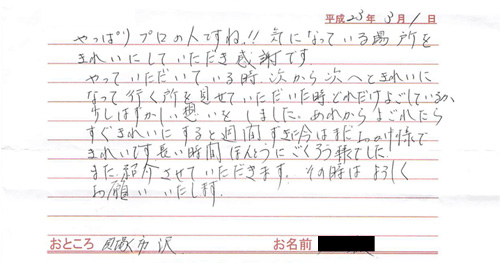 平成23年3月1日
やっぱり プロの人ですね!! 気になっている場所を
きれいにしていただき感謝です。
やっていただいている時、次から次へときれいに
なって行く所を見せていただいた時、どれだけよごしているか、
少しはずかしい想いをしました。あれから よごれたら
すぐきれいにすると週間すぎ今はまだお の様で
きれいです長い時間ほんとうにごくろう様でした。
また 紹介させていただきます。その時は よろしく
お願い いたします。
おところ 市沢 お名前